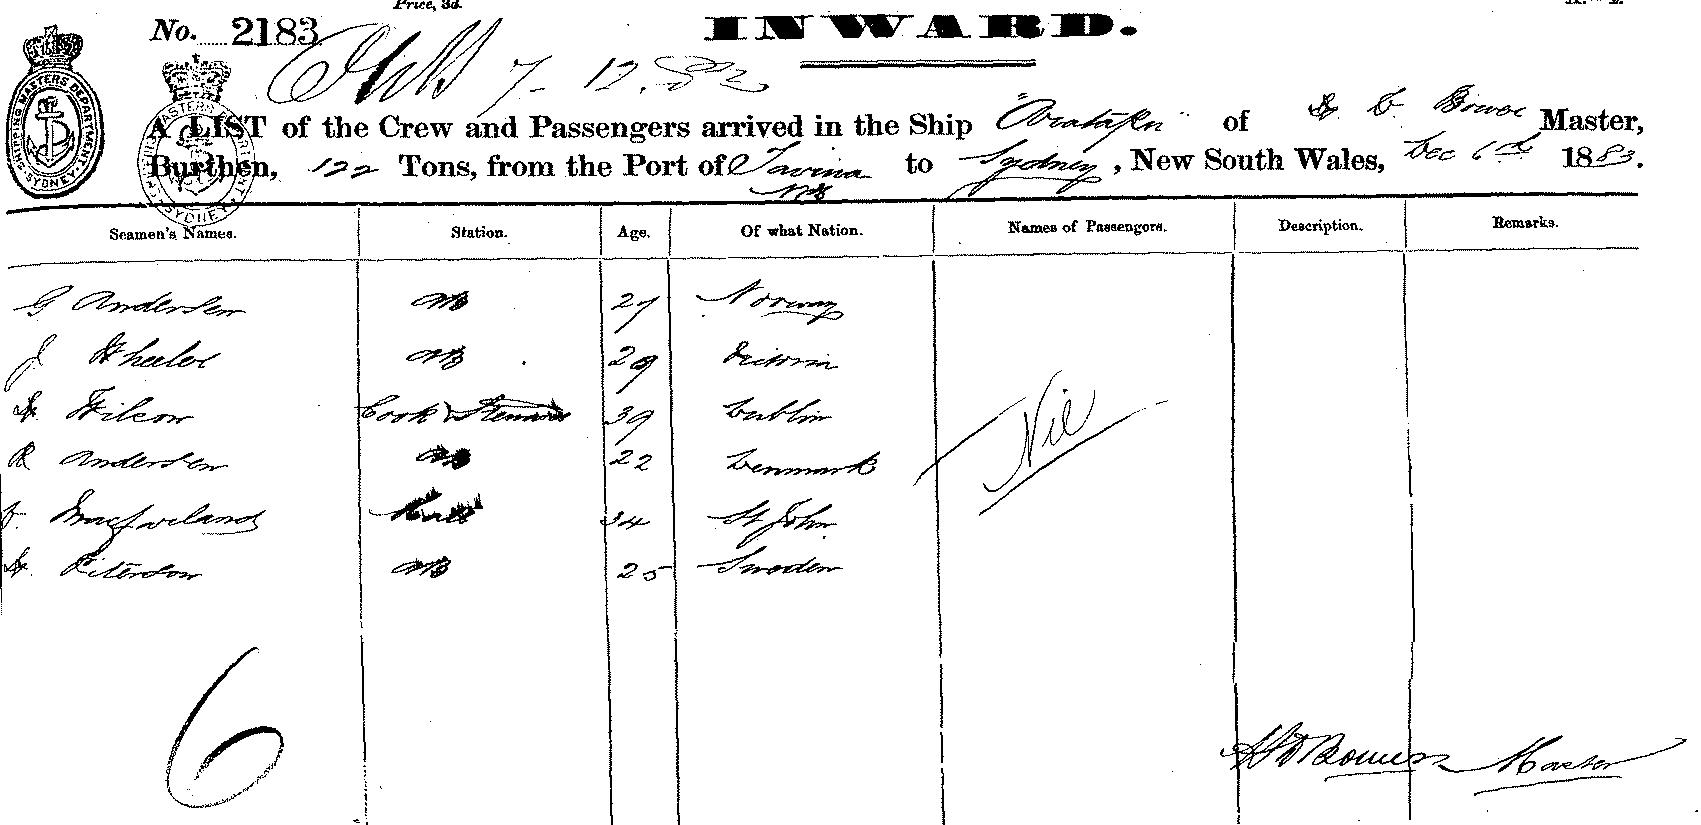 Price, 3d.
No. 2183
INWARD.
7-12.83
SHIPPING MASTERS DEPARTMENT SYDNEY
A LIST of the Crew and Passengers arrived in the Ship of Master,
Burthen, 122 Tons, from the Port of to Sydney, New South Wales, Dec 6th 1883.
Seamen's Names. Station. Age. Of what Nation. Names of Passengers. Description. Remarks.
G Andersen AB 27 Norway
J Wheeler AB 29
Wilson Cook & Steward 39 Dublin
R Andersen AB 22 Denmark
34 St John
Peterson AB 25 Sweden
Nil
6
Master